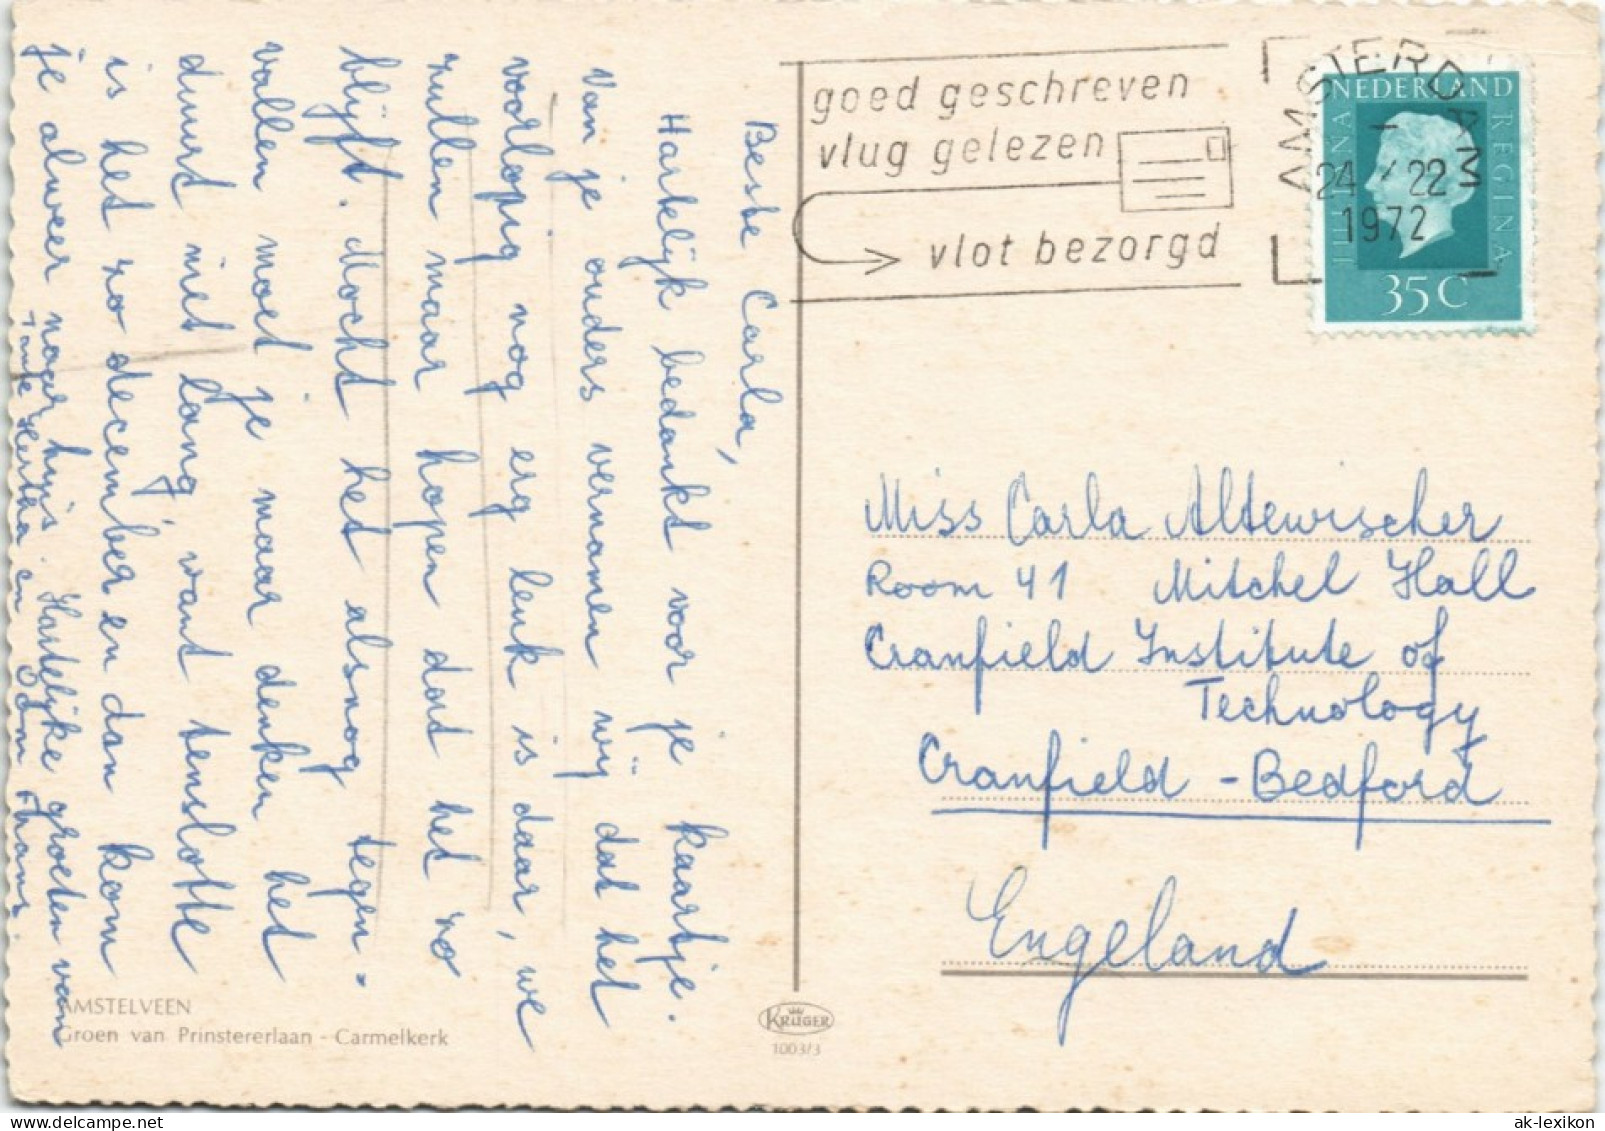 Beste Carla,
Hartelijk bedankt voor je kaartje.
Van je ouders vernamen wij dat het
voorlopig nog erg leuk is daar, we
zullen maar hopen dat het zo
blijft. Mocht het alsnog tegen-
vallen moet je maar denken het
duurt niet lang, want tenslotte
is het zo december en dan kom
je alweer naar huis. Hartelijke groeten van
Tante Hertha en Oom Hans.
goed geschreven
vlug gelezen
vlot bezorgd
AMSTERDAM
24 X 22
1972
NEDERLAND
JULIANA REGINA
35 C
Miss Carla Altewischer
Room 41 Mitchel Hall
Cranfield Institute of
Technology
Cranfield - Bedford
Engeland
AMSTELVEEN
Groen van Prinstererlaan - Carmelkerk
KRÜGER
1003/3
ak-lexikon